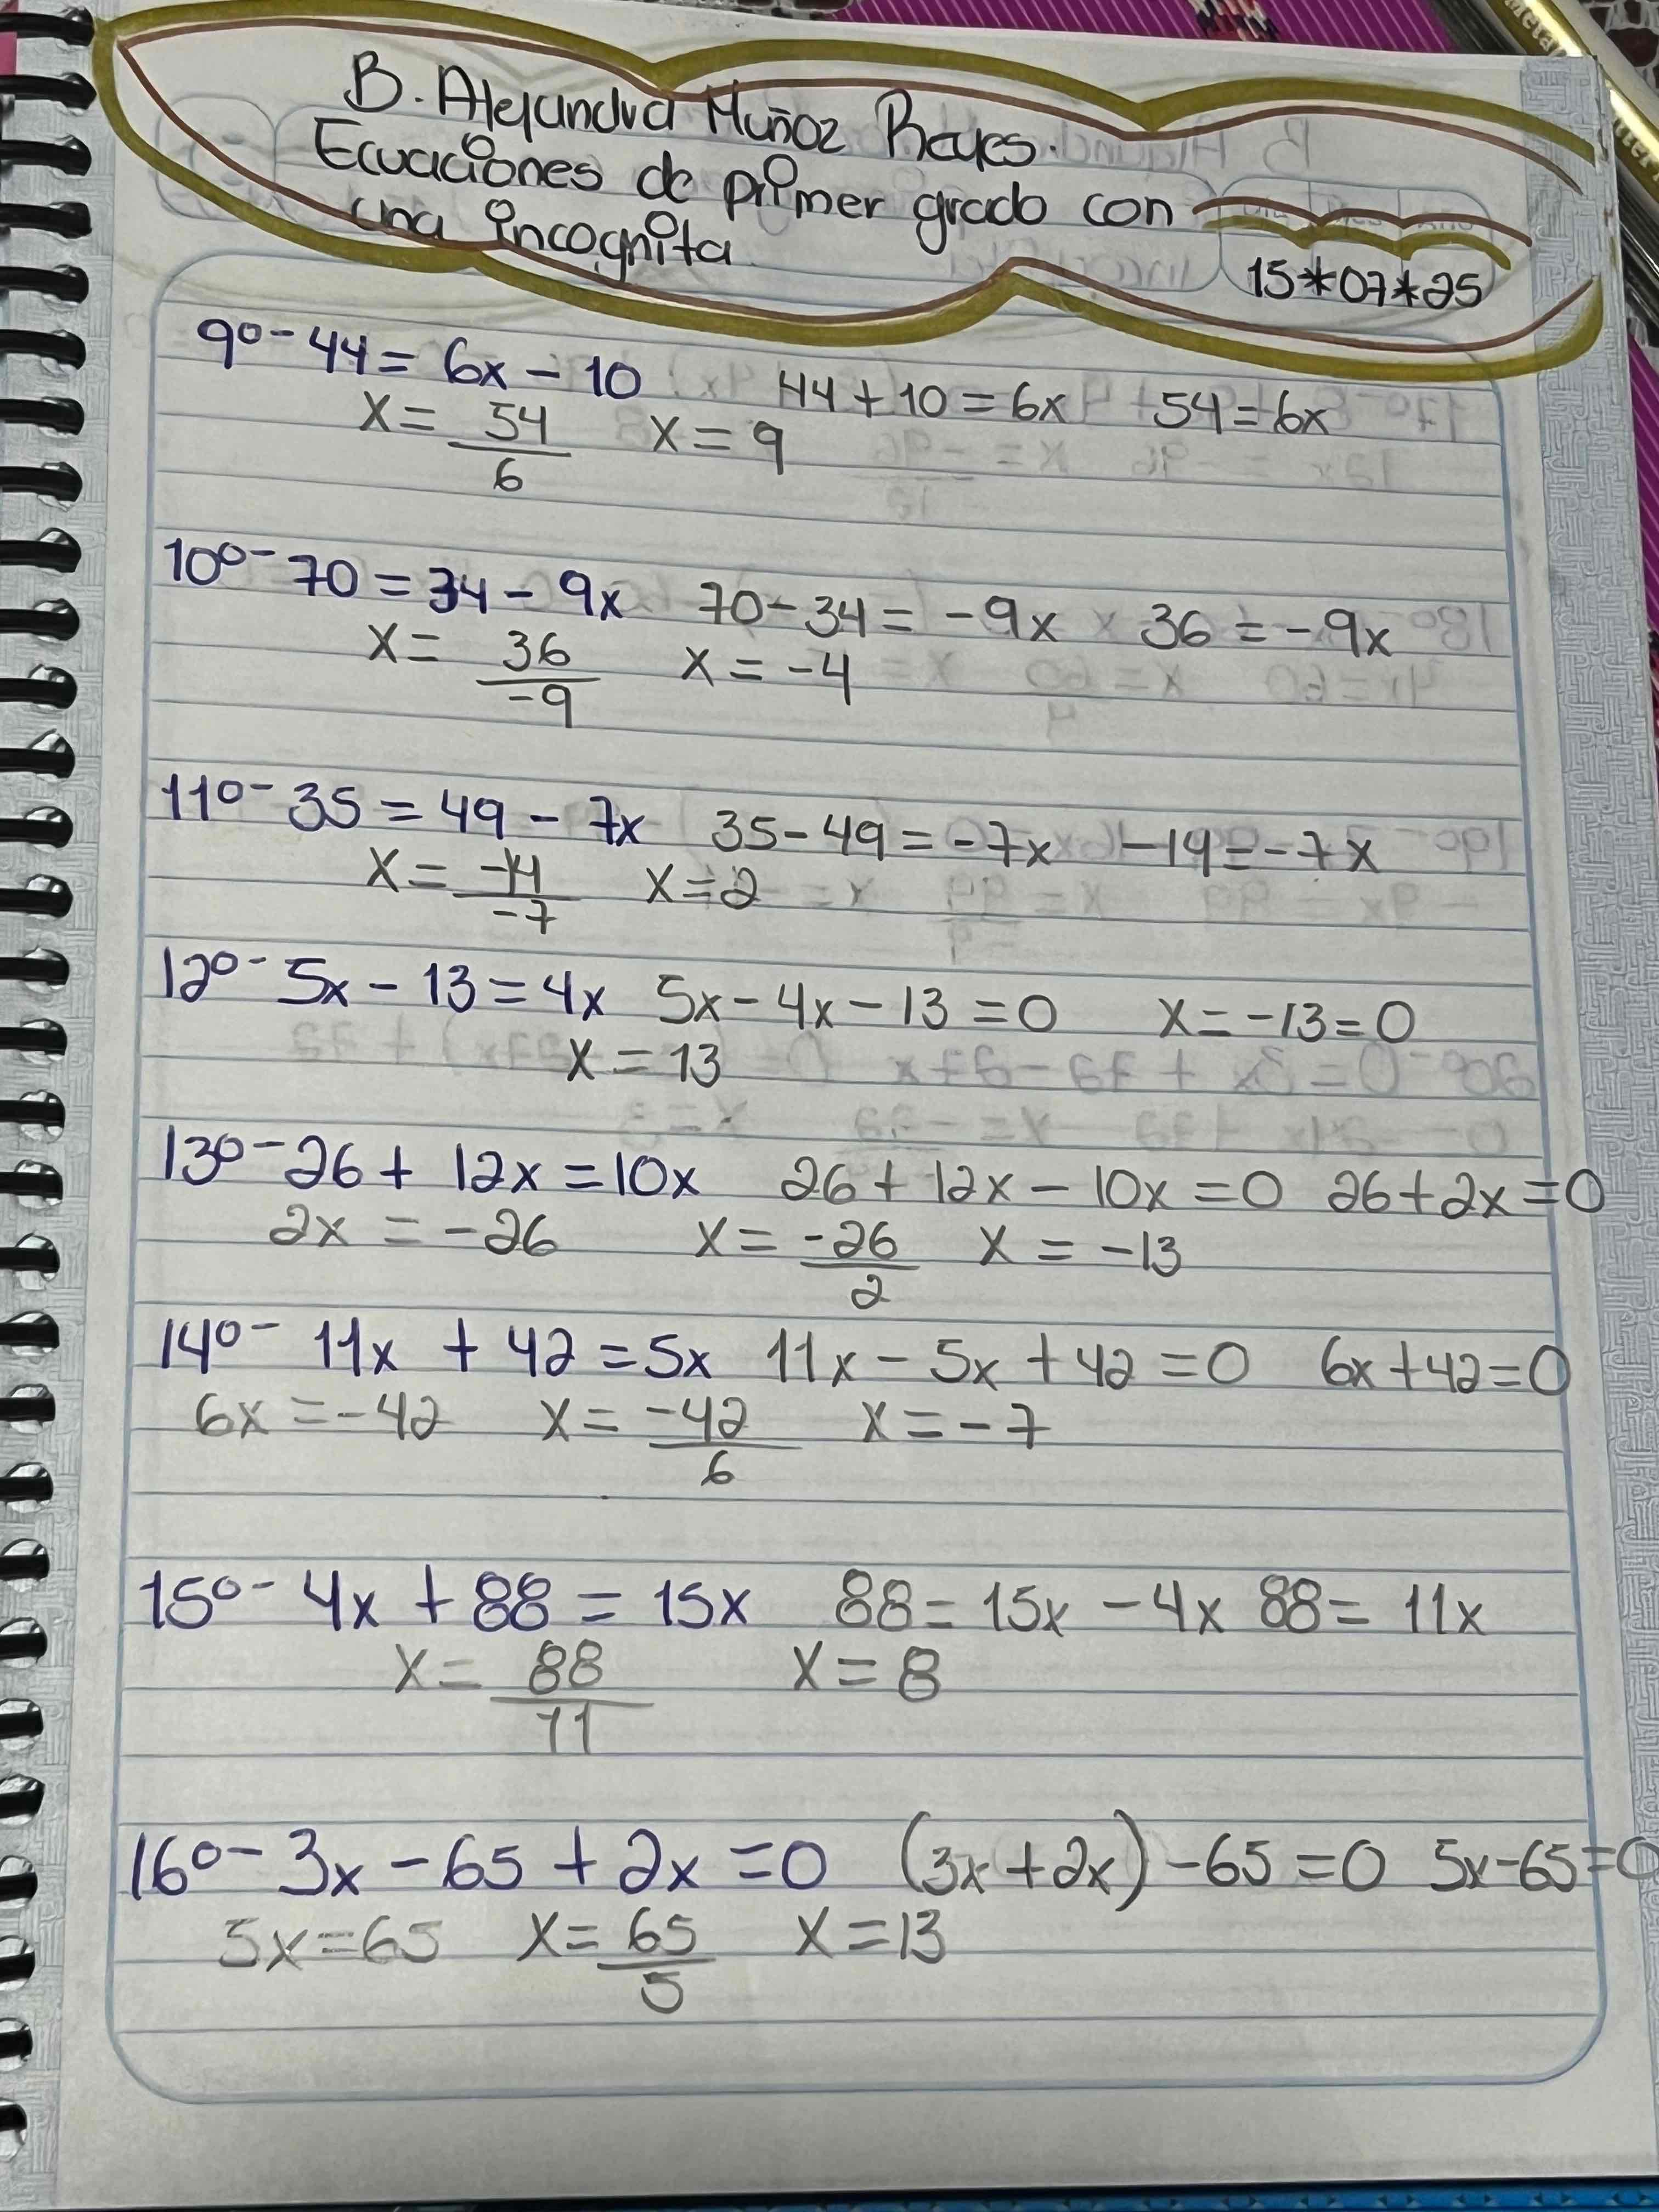 B. Alejandra Muñoz Reyes.
Ecuaciones de primer grado con
una incognita
15*07*25
9º- 44 = 6x - 10 44 + 10 = 6x 54 = 6x
x = 54/6 x = 9
10º- 70 = 34 - 9x 70 - 34 = -9x 36 = -9x
x = 36/-9 x = -4
11º- 35 = 49 - 7x 35 - 49 = -7x -14 = -7x
x = -14/-7 x = 2
12º- 5x - 13 = 4x 5x - 4x - 13 = 0 x = -13 = 0
x = 13
13º- 26 + 12x = 10x 26 + 12x - 10x = 0 26 + 2x = 0
2x = -26 x = -26/2 x = -13
14º- 11x + 42 = 5x 11x - 5x + 42 = 0 6x + 42 = 0
6x = -42 x = -42/6 x = -7
15º- 4x + 88 = 15x 88 = 15x - 4x 88 = 11x
x = 88/11 x = 8
16º- 3x - 65 + 2x = 0 (3x + 2x) - 65 = 0 5x - 65 = 0
5x = 65 x = 65/5 x = 13